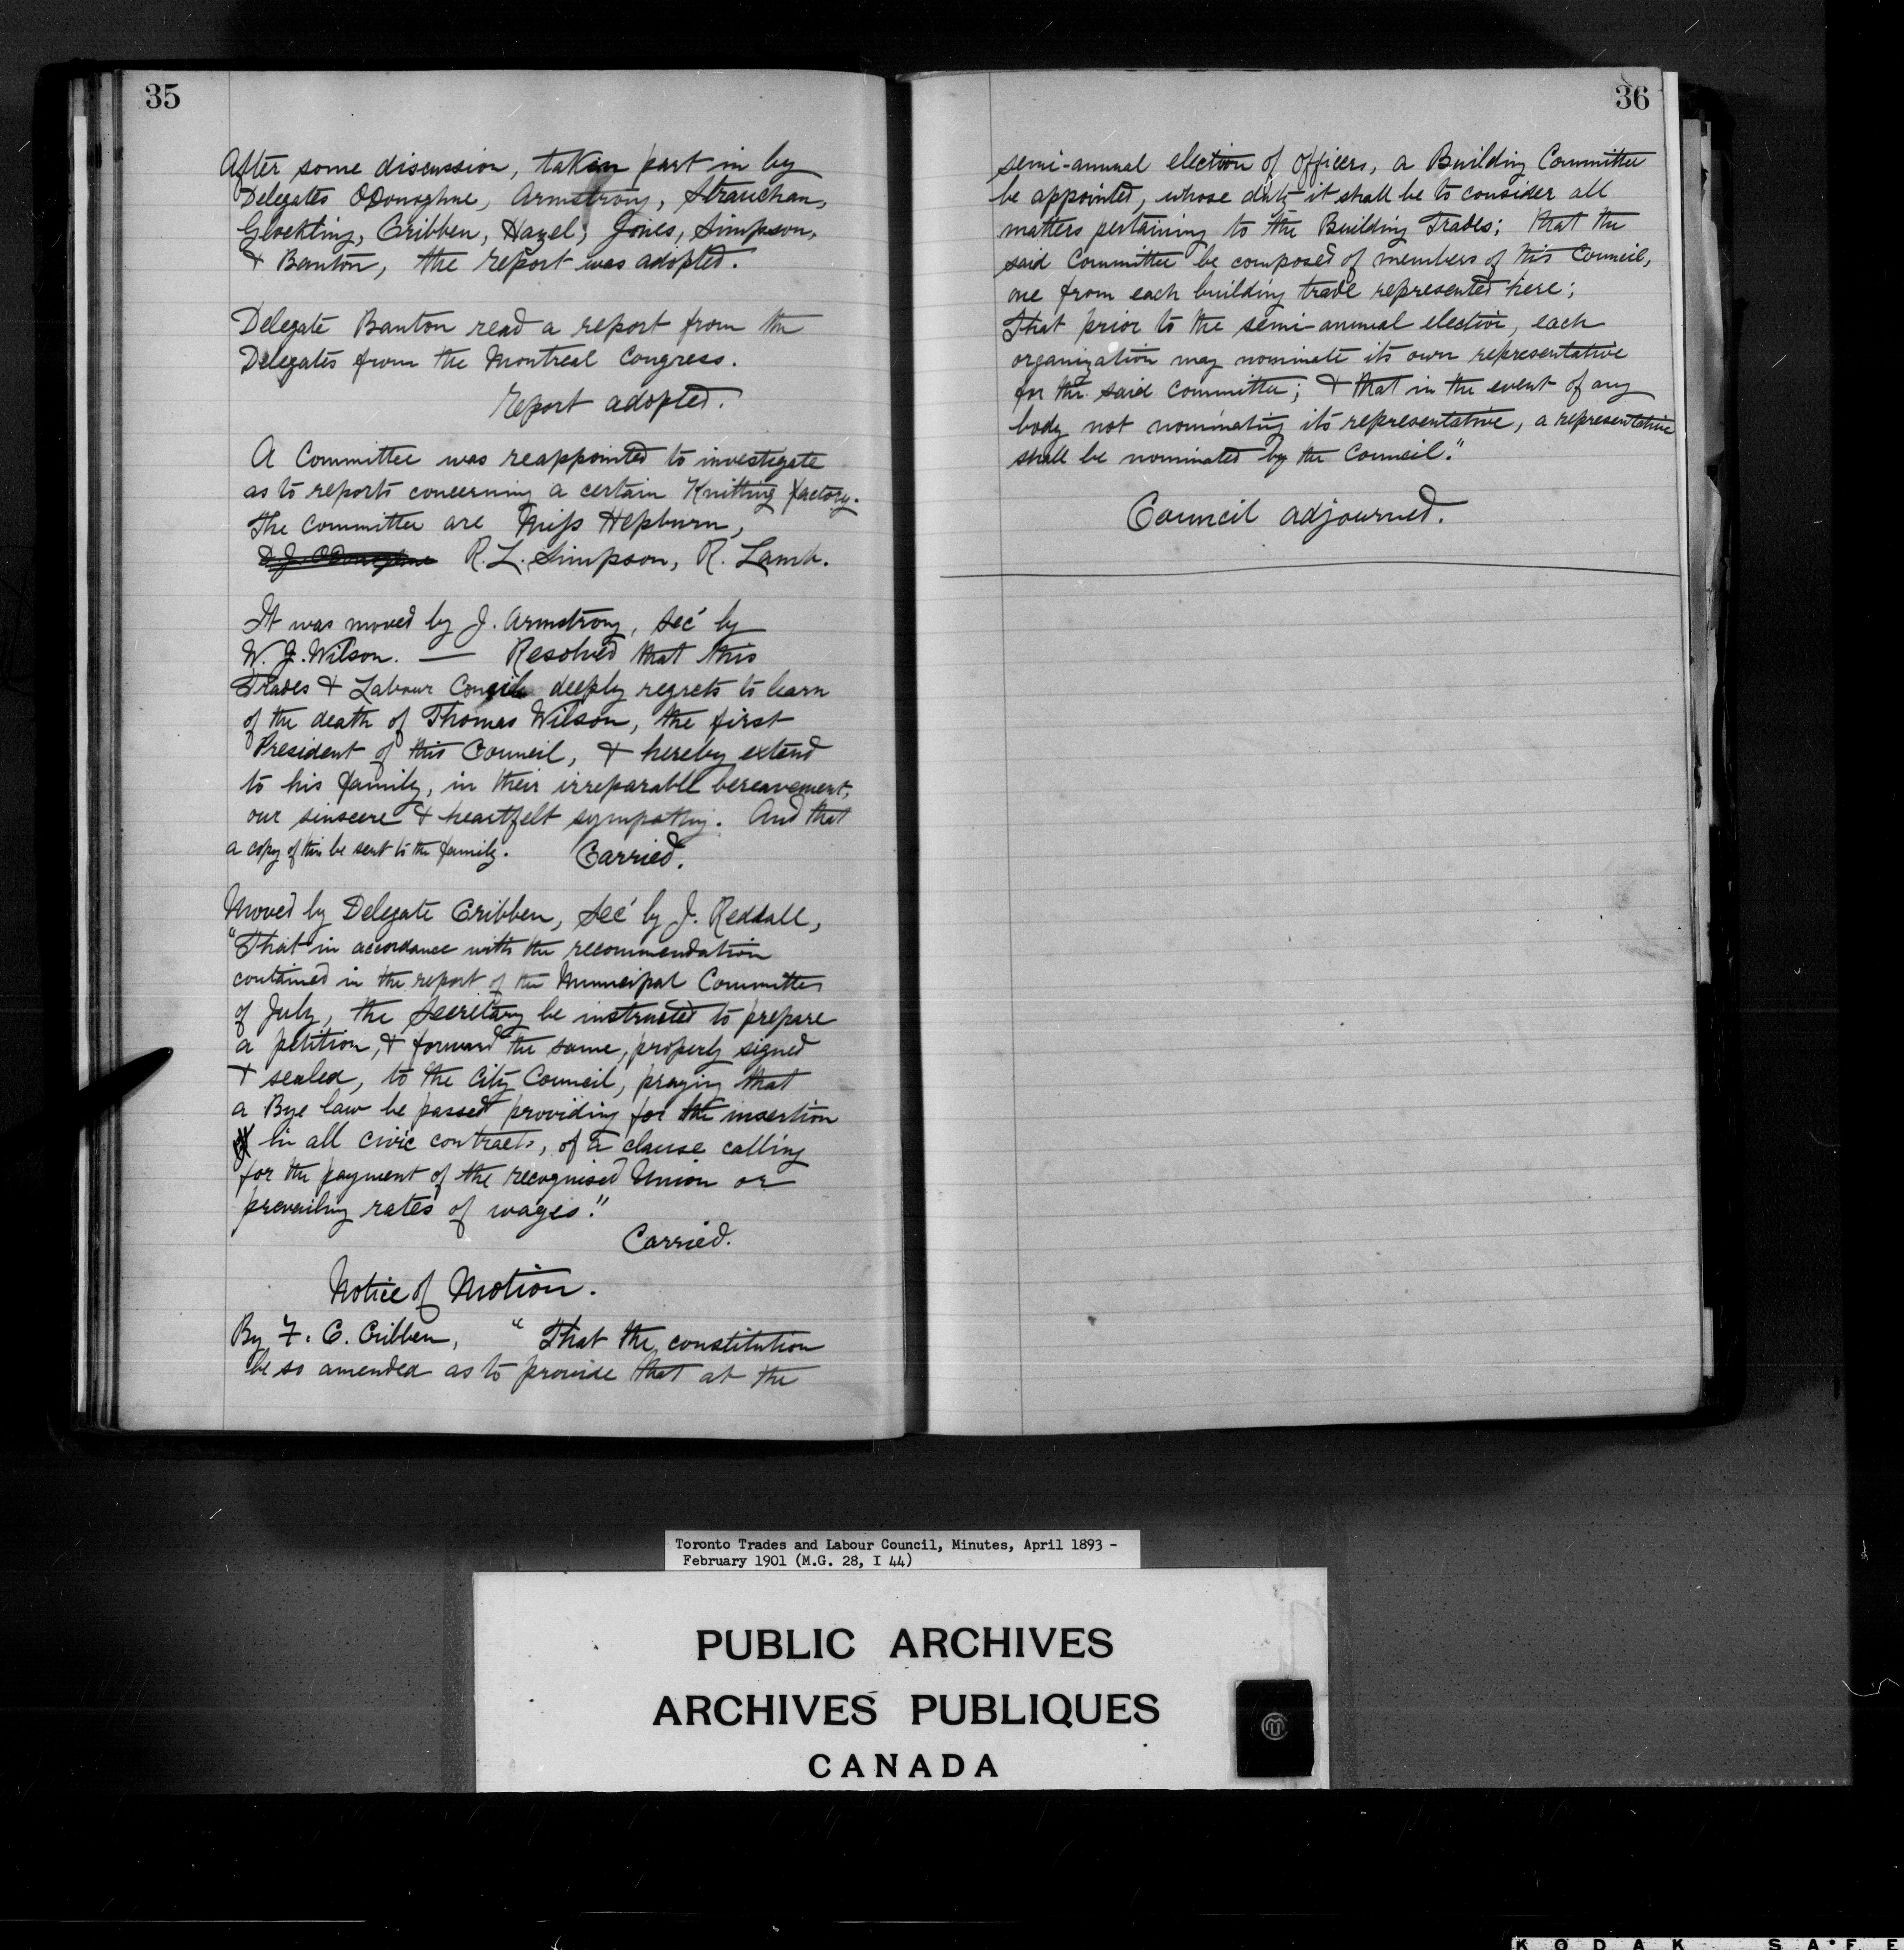 35
After some discussion, taken part in by
Delegates ODonoghue, Armstrong, Strauchan,
Glockling, Cribben, Hazel, Jones, Simpson,
& Banton, the report was adopted.
Delegate Banton read a report from the
Delegates from the Montreal Congress.
Report adopted.
A Committee was reappointed to investigate
as to reports concerning a certain Knitting factory.
The Committee are Miss Hepburn,
D. J. ODonoghue R. L. Simpson, R. Lamb.
It was moved by J. Armstrong, Sec' by
W. J. Wilson. — Resolved that this
Trades & Labour Concil deeply regrets to learn
of the death of Thomas Wilson, the first
President of this Council, & hereby extend
to his family, in their irreparable bereavement,
our sinseere & heartfelt sympathy. And that
a copy of this be sent to the family. Carried.
Moved by Delegate Cribben, Sec' by J. Reddall,
"That in accordance with the recommendation
contained in the report of the Municipal Committee
of July, the Secretary be instructed to prepare
a petition, & forward the same, properly signed
& sealed, to the City Council, praying that
a Bye law be passed providing for the insertion
in all civic contracts, of a clause calling
for the payment of the recognised Union or
prevailing rates of wages."
Carried.
Notice of Motion.
By F. C. Cribben, "That the constitution
be so amended as to provide that at the
36
semi-annual election of Officers, a Building Committee
be appointed, whose duty it shall be to consider all
matters pertaining to the Building Trades; that the
said Committee be composed of members of this Council,
one from each building trade represented here;
That prior to the semi-annual election, each
organization may nominate its own representative
for the said Committee; & that in the event of any
body not nominating its representative, a representative
shall be nominated by the Council."
Council adjourned.
Toronto Trades and Labour Council, Minutes, April 1893 -
February 1901 (M.G. 28, I 44)
PUBLIC ARCHIVES
ARCHIVES PUBLIQUES
CANADA
KODAK SAFE